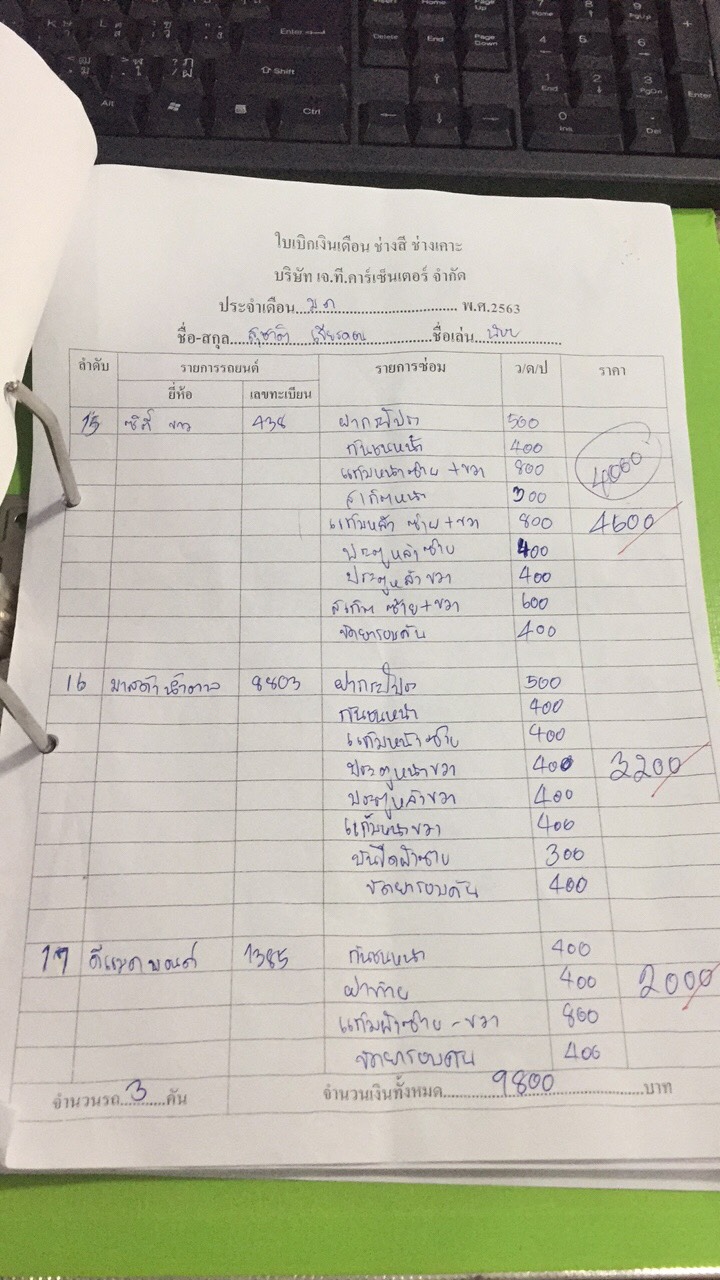 ใบเบิกเงินเดือน ช่างสี ช่างเคาะ
บริษัท เจ.ที.คาร์เซ็นเตอร์ จำกัด
ประจำเดือน...มค...พ.ศ.2563
ชื่อ-สกุล...สุชาติ...ชื่อเล่น...
ลำดับ รายการรถยนต์ รายการซ่อม ว/ด/ป ราคา
ยี่ห้อ เลขทะเบียน
15 ซิตี้ ขาว 438 ฝากระโปรง 500
กันชนหน้า 400 4000
แก้มหน้าซ้าย + ขวา 800
300
แก้มหลัง ซ้าย + ขวา 800 4600
ประตูหลังซ้าย 400
ประตูหลังขวา 400
ซ้าย + ขวา 600
ขัดยารอบคัน 400
16 มาสด้า น้ำตาล 8803 ฝากระโปรง 500
กันชนหน้า 400
แก้มหน้าซ้าย 400
ประตูหน้าขวา 400 3200
ประตูหลังขวา 400
แก้มหน้าขวา 400
300
ขัดยารอบคัน 400
17 ดีแมค 1385 กันชนหน้า 400
ฝาท้าย 400 2000
800
ขัดยารอบคัน 400
จำนวนรถ...3...คัน จำนวนเงินทั้งหมด...9800...บาท